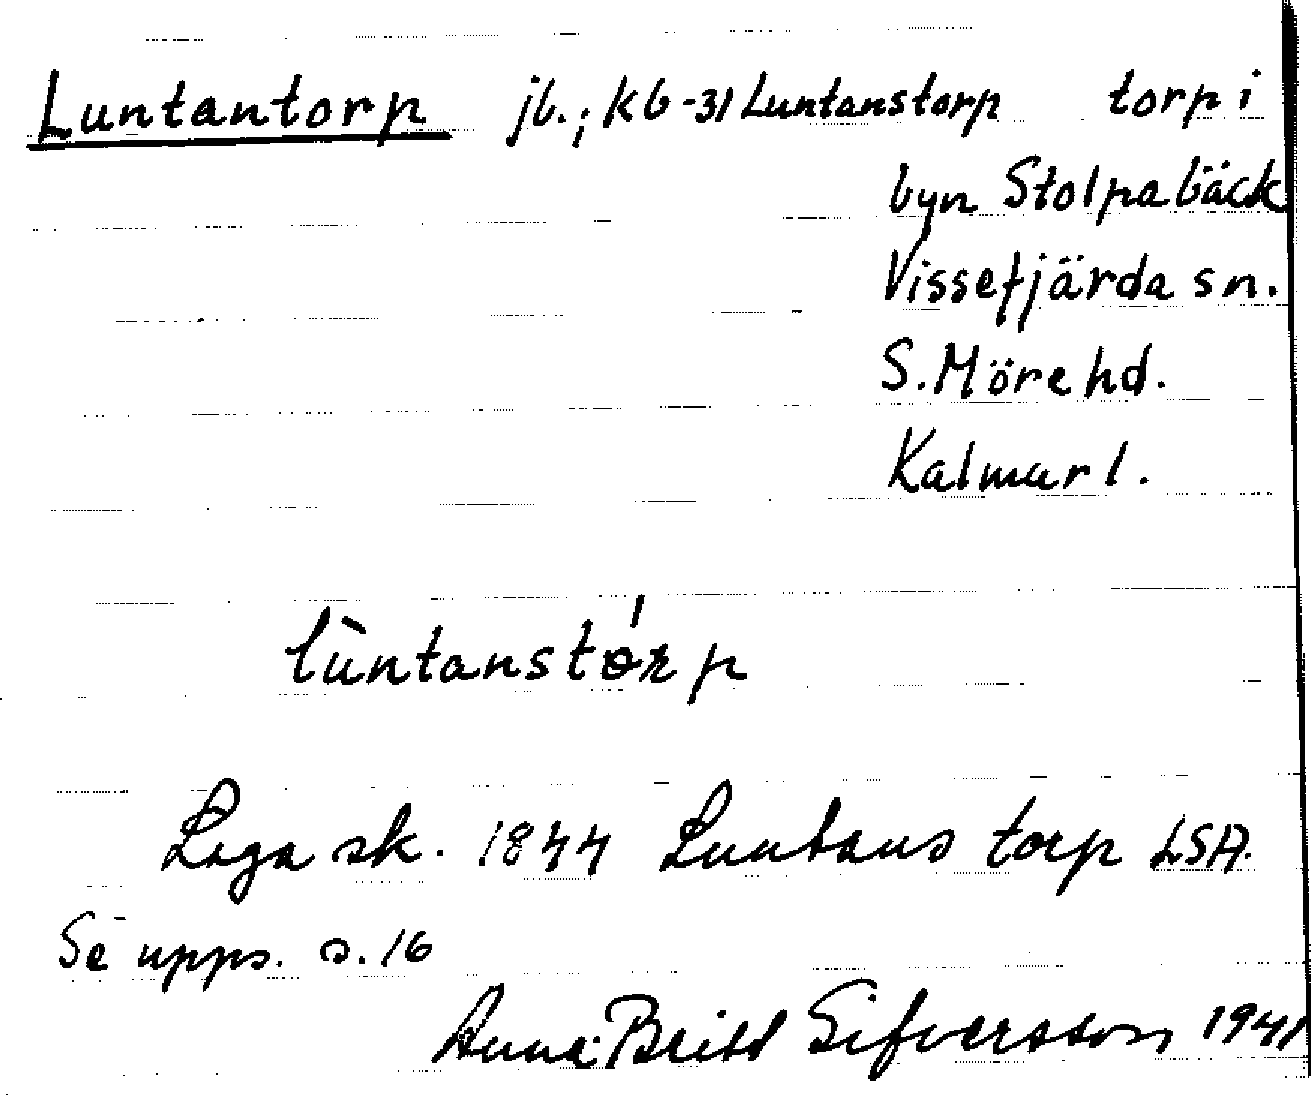 Luntantorp jb.; kb -31 Luntanstorp torp i
byn Stolpabäck
Vissefjärda sn.
S. Möre hd.
Kalmar l.
lùntanstórp
Laga sk. 1844 Luntans torp LSA.
Se upps. s. 16
Anna-Britt Sifversson 1941